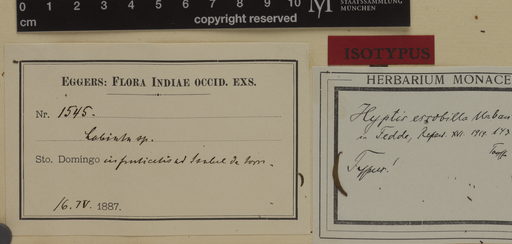 0 1 2 3 4 5 6 7 8 9 10
cm
copyright reserved
M
STAATSSAMMLUNG
MÜNCHEN
ISOTYPUS
EGGERS: FLORA INDIAE OCCID. EXS.
Nr. 1545.
Labiata sp.
Sto. Domingo in fruticetis ad Isabel de
16. IV. 1887.
HERBARIUM MONACE
Hyptis escobilla Urban
in Fedde, Repert. XVI. 1919. 143
Typus!